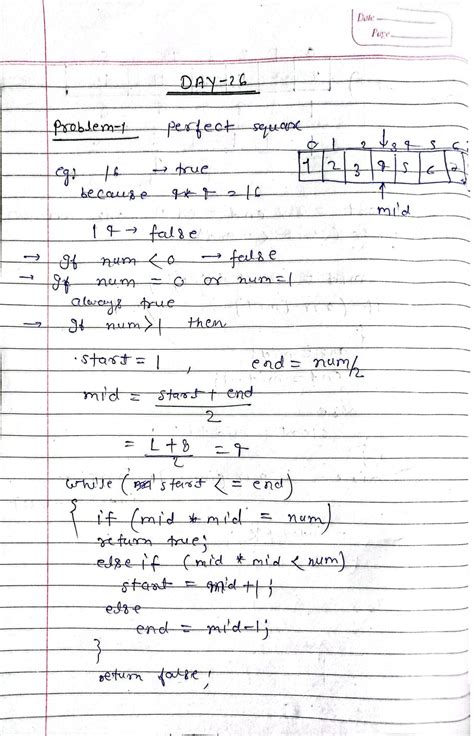 Date
Page
DAY-26
Problem-1 perfect square
0 1 2 3 4 5 6
1 2 3 4 5 6 7
mid
eg: 16 → true
because 4*4 = 16
14 → false
→ If num < 0 → false
→ If num = 0 or num=1
always true
→ If num>1 then
start = 1, end = num/2
mid = start + end
2
= 1+8 = 4
2
while (start <= end)
{ if (mid * mid = num)
return true;
else if (mid * mid < num)
start = mid+1;
else
end = mid-1;
}
return false;